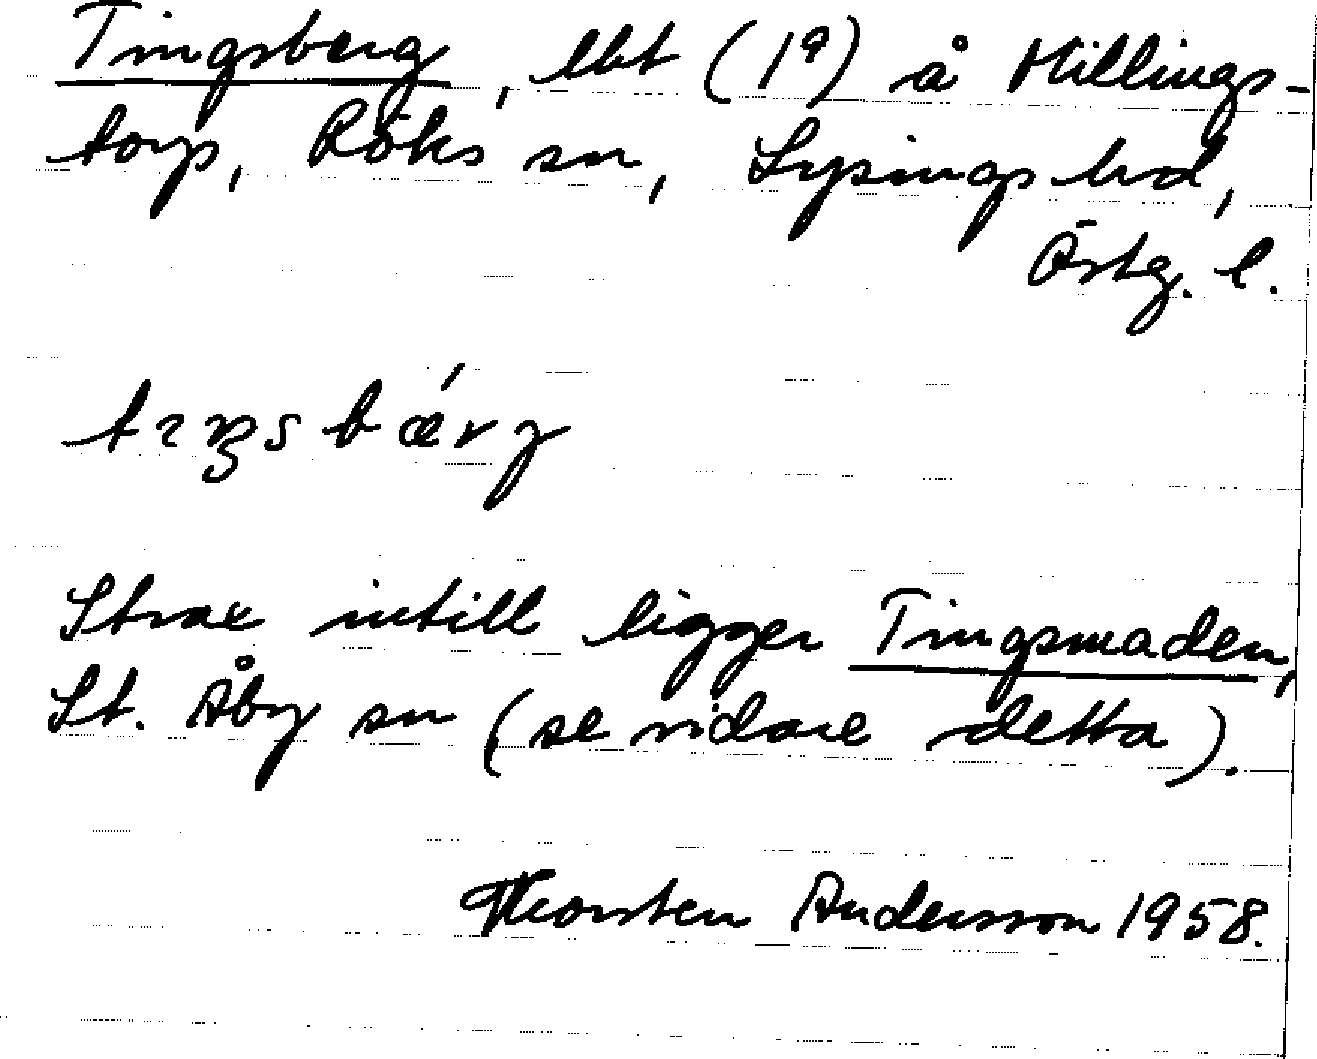 Tingsberg, lht (1ᵃ) å Millings-
torp, Röks sn, Lysings hd,
Östg. l.
Strax intill ligger Tingsmaden,
St. Åby sn (se vidare detta).
Thorsten Andersson 1958.